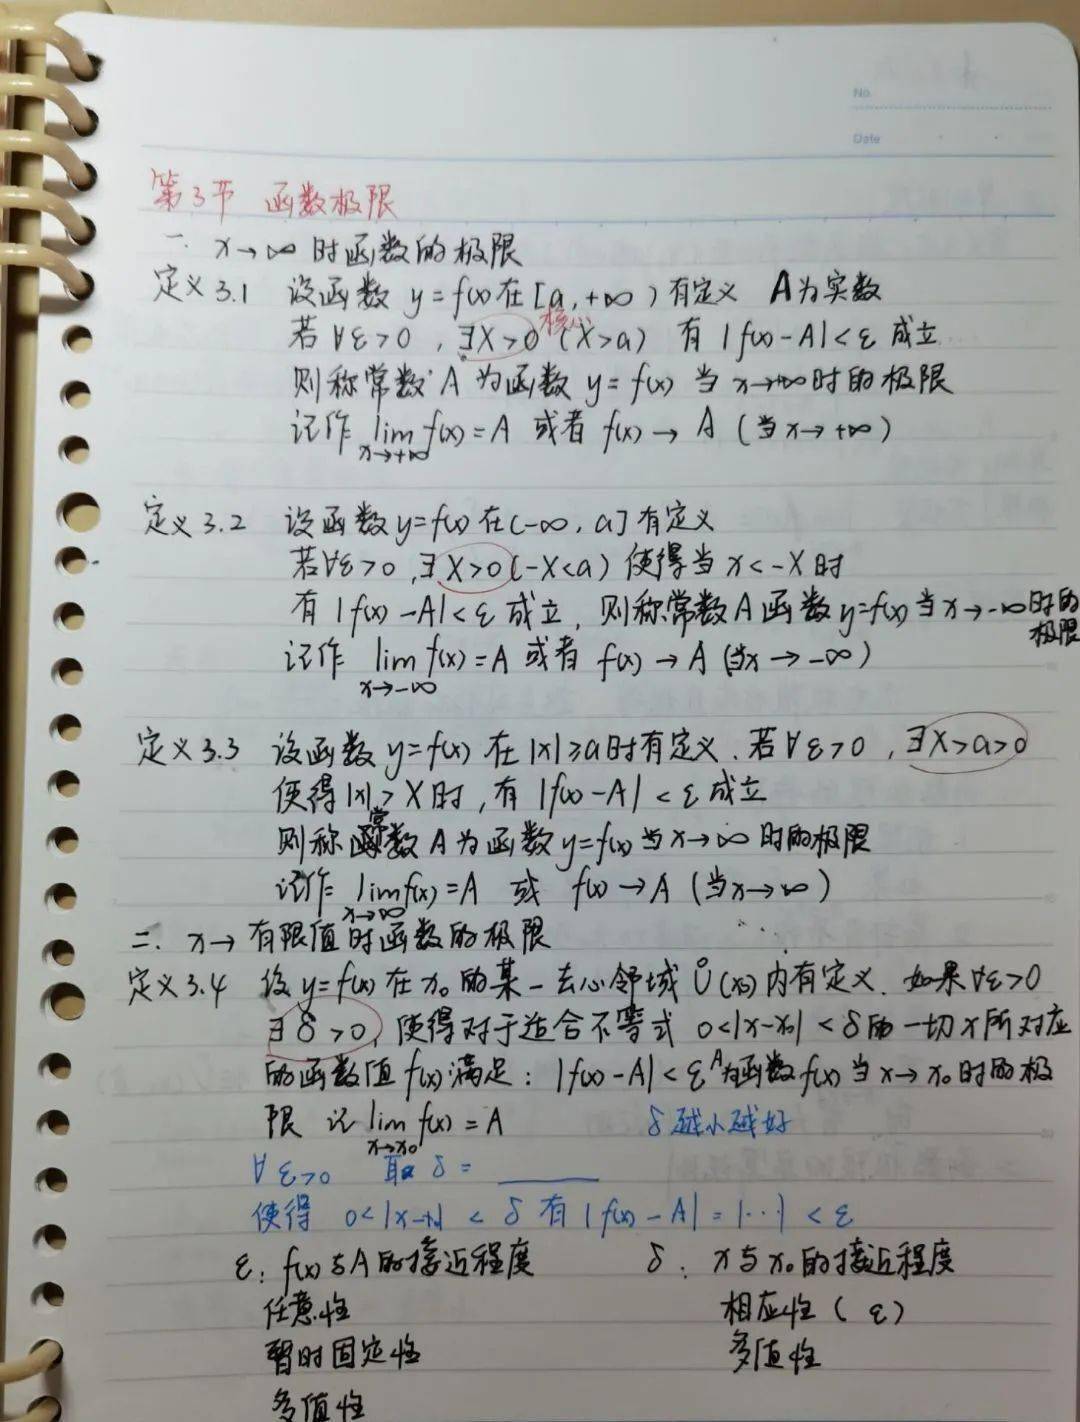 No.
Date
第3节 函数极限
一. x→∞ 时函数的极限
定义3.1 设函数 y=f(x)在[a,+∞)有定义 A为实数
核心
若∀ε>0,∃X>0(X>a) 有|f(x)-A|<ε 成立
则称常数A为函数y=f(x)当x→+∞时的极限
记作 lim f(x)=A 或者 f(x)→A(当x→+∞)
x→+∞
定义3.2 设函数y=f(x)在(-∞,a]有定义
若∀ε>0,∃X>0(-X<a)使得当x<-X时
有|f(x)-A|<ε成立,则称常数A函数y=f(x)当x→-∞时的
极限
记作 lim f(x)=A 或者 f(x)→A(当x→-∞)
x→-∞
定义3.3 设函数y=f(x)在|x|≥a时有定义.若∀ε>0,∃X>a>0
使得|x|>X时,有|f(x)-A|<ε成立
则称常数A为函数y=f(x)当x→∞时的极限
记作 lim f(x)=A 或 f(x)→A(当x→∞)
x→∞
二. x→有限值时函数的极限
定义3.4 设y=f(x)在x₀的某一去心邻域Ů(x₀)内有定义.如果∀ε>0
∃δ>0,使得对于适合不等式 0<|x-x₀|<δ的一切x所对应
的函数值f(x)满足:|f(x)-A|<ε A为函数f(x)当x→x₀时的极
限 记 lim f(x)=A δ越小越好
x→x₀
∀ε>0 取δ=____
使得 0<|x-x₀|<δ有|f(x)-A|=|…|<ε
ε:f(x)与A的接近程度 δ:x与x₀的接近程度
任意性 相应性(ε)
暂时固定性 多值性
多值性